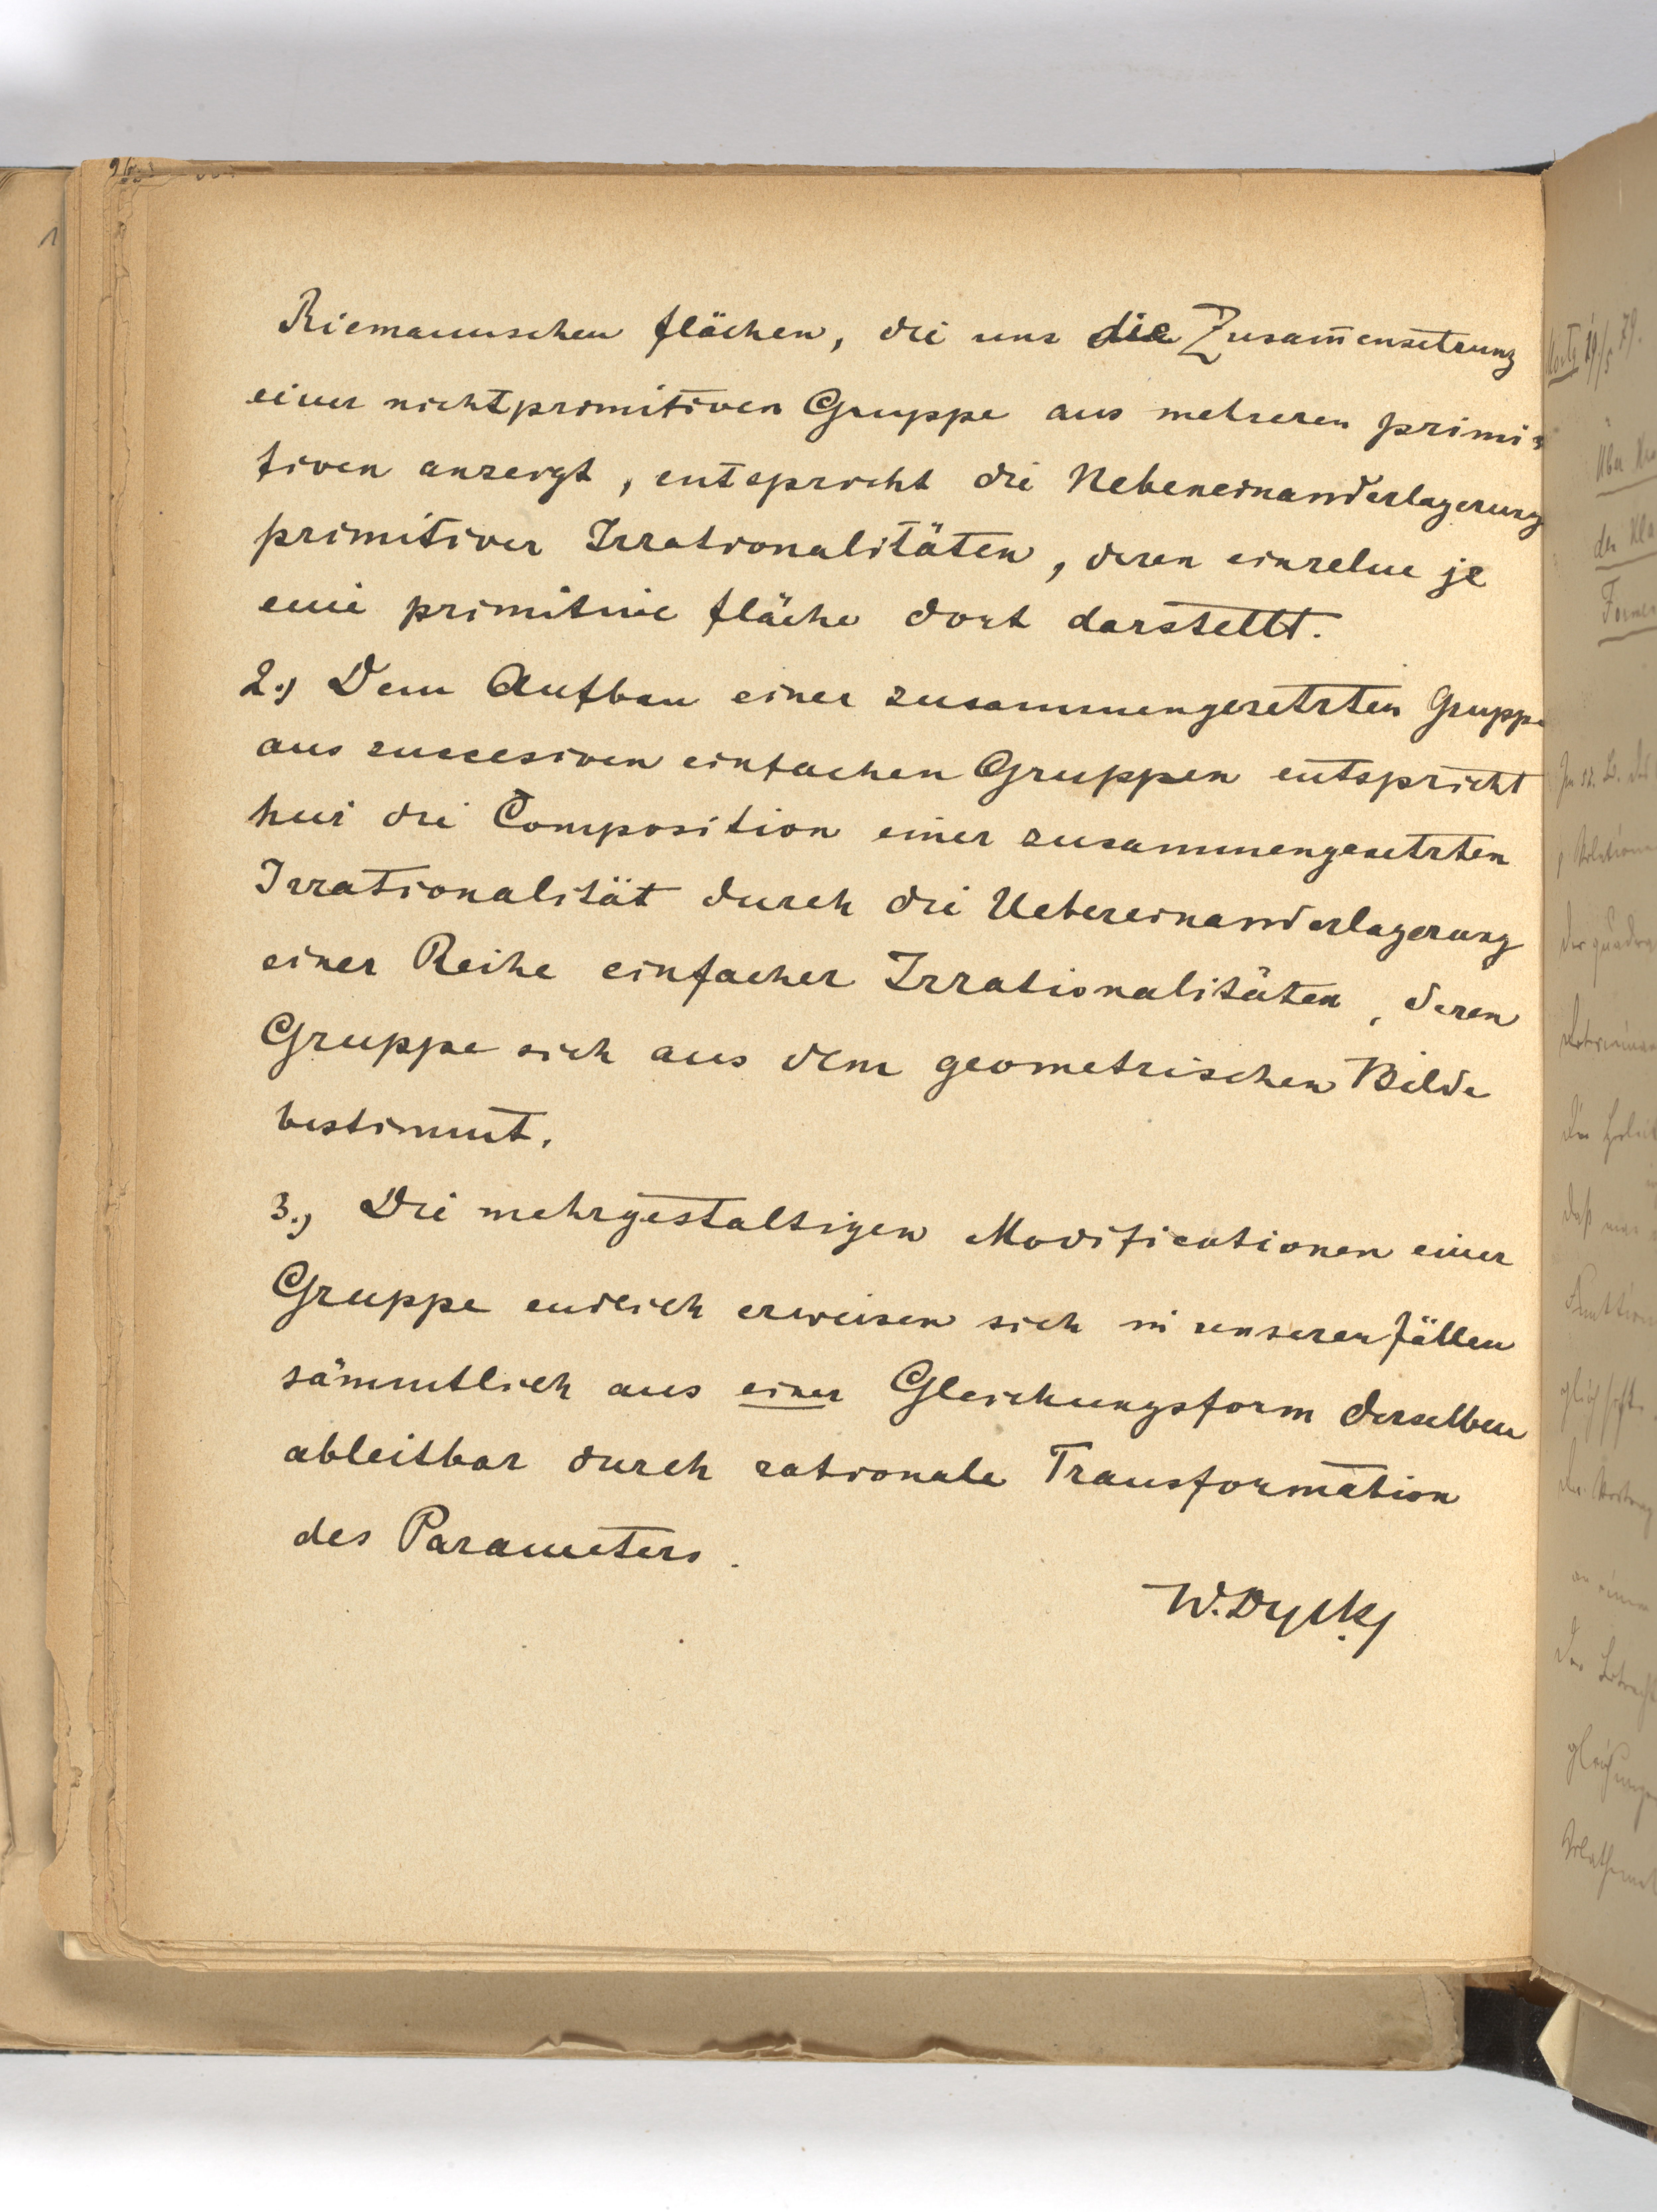 Riemannschen Flächen, die uns die Zusam̄ensetzung
einer nichtprimitiven Gruppe aus mehreren primi-
tiven anzeigt, entspricht die Nebeneinanderlagerung
primitiver Irrationalitäten, deren einzelne je
eine primitive Fläche dort darstellt.
2.) Dem Aufbau einer zusammengesetzten Gruppe
aus succesiven einfachen Gruppen entspricht
hier die Composition einer zusammengesetzten
Irrationalität durch die Uebereinanderlagerung
einer Reihe einfacher Irrationalitäten, deren
Gruppe sich aus dem geometrischen Bilde
bestimmt.
3.) Die mehrgestaltigen Modificationen einer
Gruppe endlich erweisen sich in unseren Fällen
sämmtlich aus einer Gleichungsform derselben
ableitbar durch rationale Transformation
des Parameters.
W. Dyck